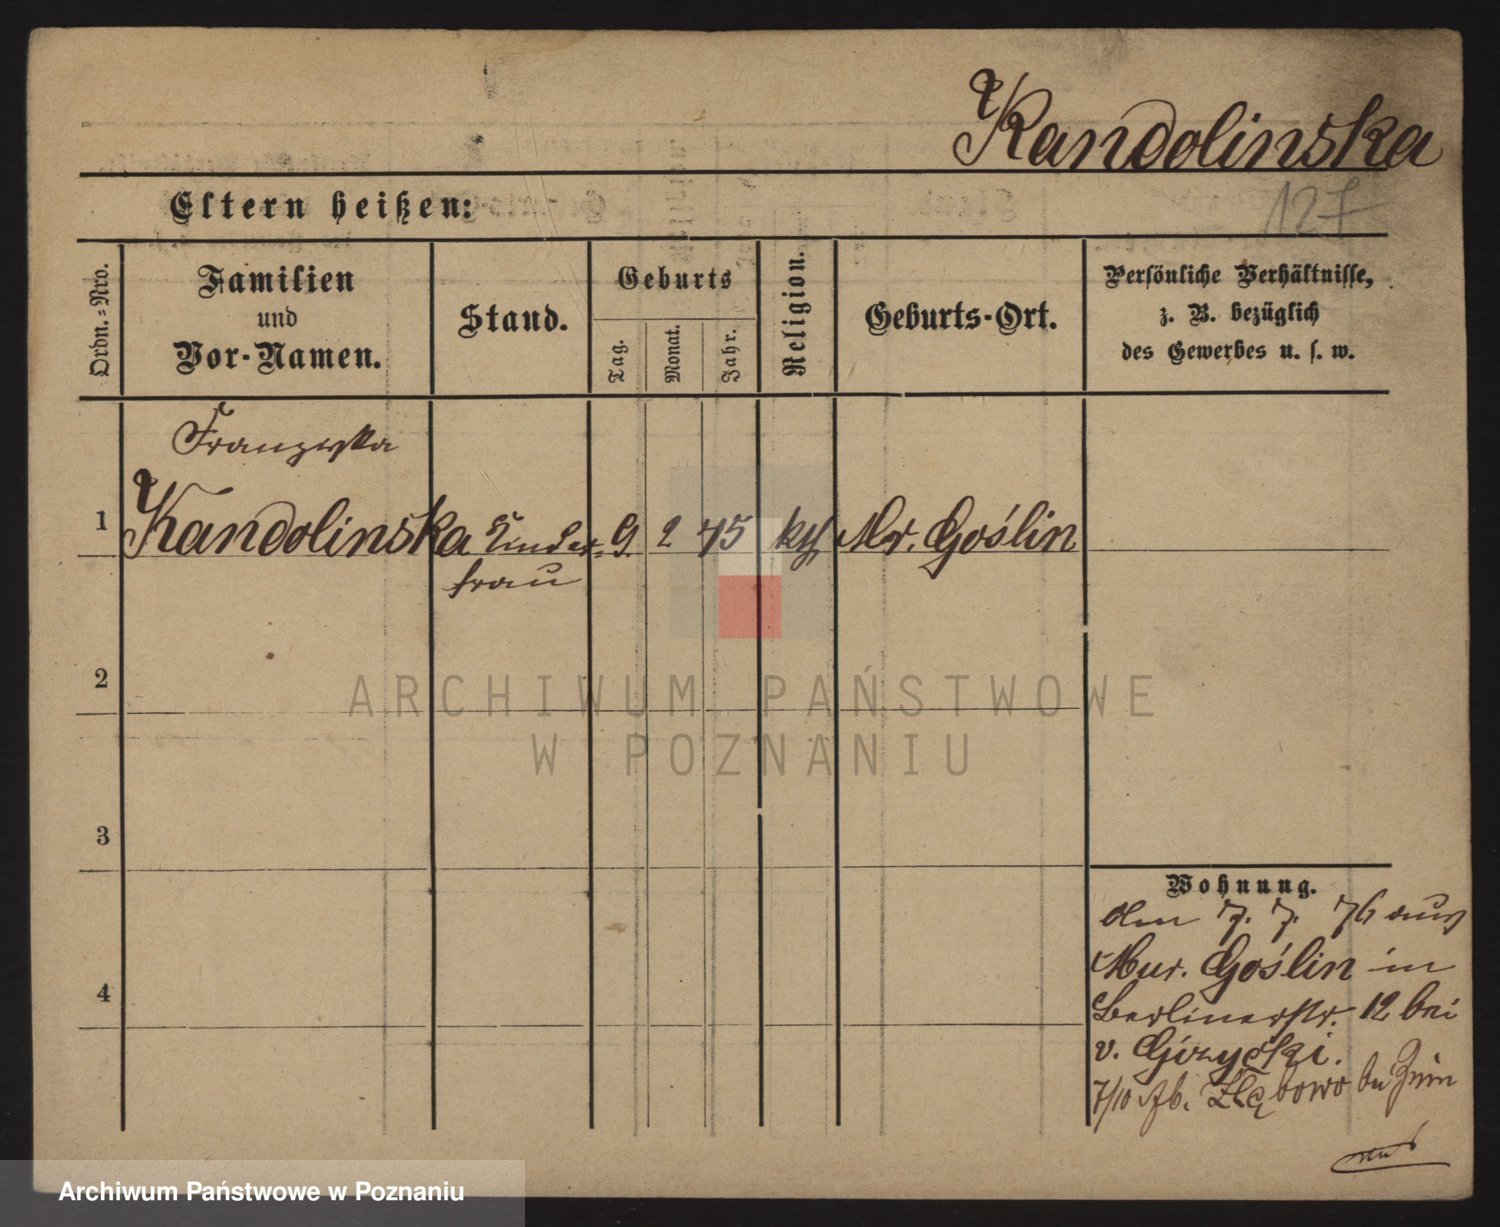 Kandolinska
127
Eltern heißen:
Ordn.-Nro.
Familien
und
Vor-Namen.
Stand.
Geburts
Tag.
Monat.
Jahr.
Religion.
Geburts-Ort.
Persönliche Verhältnisse,
z. B. bezüglich
des Gewerbes u. s. w.
Franziska
1 Kandolinska Kinder- 9 2 45 kth Mr. Goślin
frau
2
3
4
Wohnung.
den 7. 7. 76 aus
Mur. Goślin in
Berlinerstr. 12 bei
v. Gózycki.
7/10 Ab.
ARCHIWUM PAŃSTWOWE
W POZNANIU
Archiwum Państwowe w Poznaniu